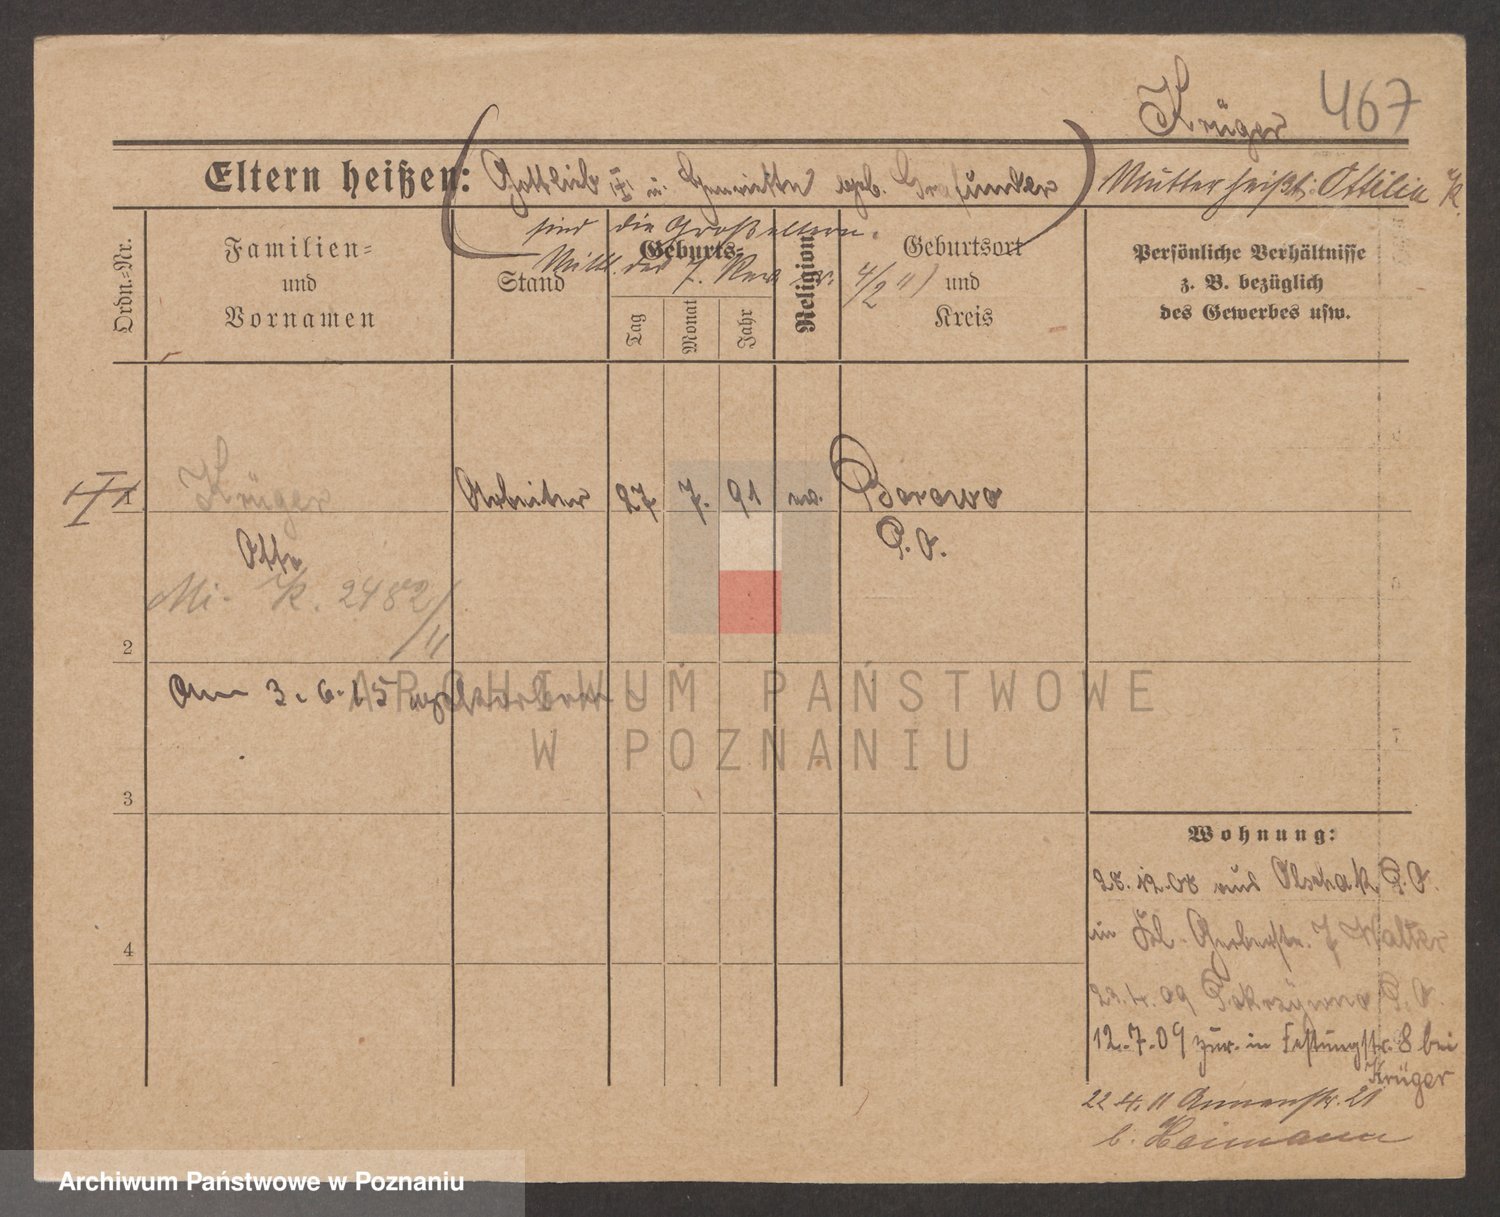 Krüger 467
Eltern heißen: (Gottlieb u. Henriette geb. Grafunder) Mutter heißt: Ottilie K.
sind die Großeltern.
Mittl. des 7. Rev. v. 4/2 11)
Ordn.-Nr.
Familien-
und
Vornamen
Stand
Geburts-
Tag
Monat
Jahr
Religion
Geburtsort
und
Kreis
Persönliche Verhältnisse
z. B. bezüglich
des Gewerbes usw.
1 Krüger Arbeiter 27 7. 91 ev. Borowo
Otto P. O.
Mi. K. 2482/11
2
Am 3. 6. 15
3
4
Wohnung:
28.12.08 aus P. O.
in Kl. Gerberstr. 7 Walter
23.4.09 Pokrzywno P. O.
12.7.09 zur. in Festungstr. 8 bei
Krüger
22.4.11 Annenstr. 21
b. Heimann
ARCHIWUM PAŃSTWOWE
W POZNANIU
Archiwum Państwowe w Poznaniu